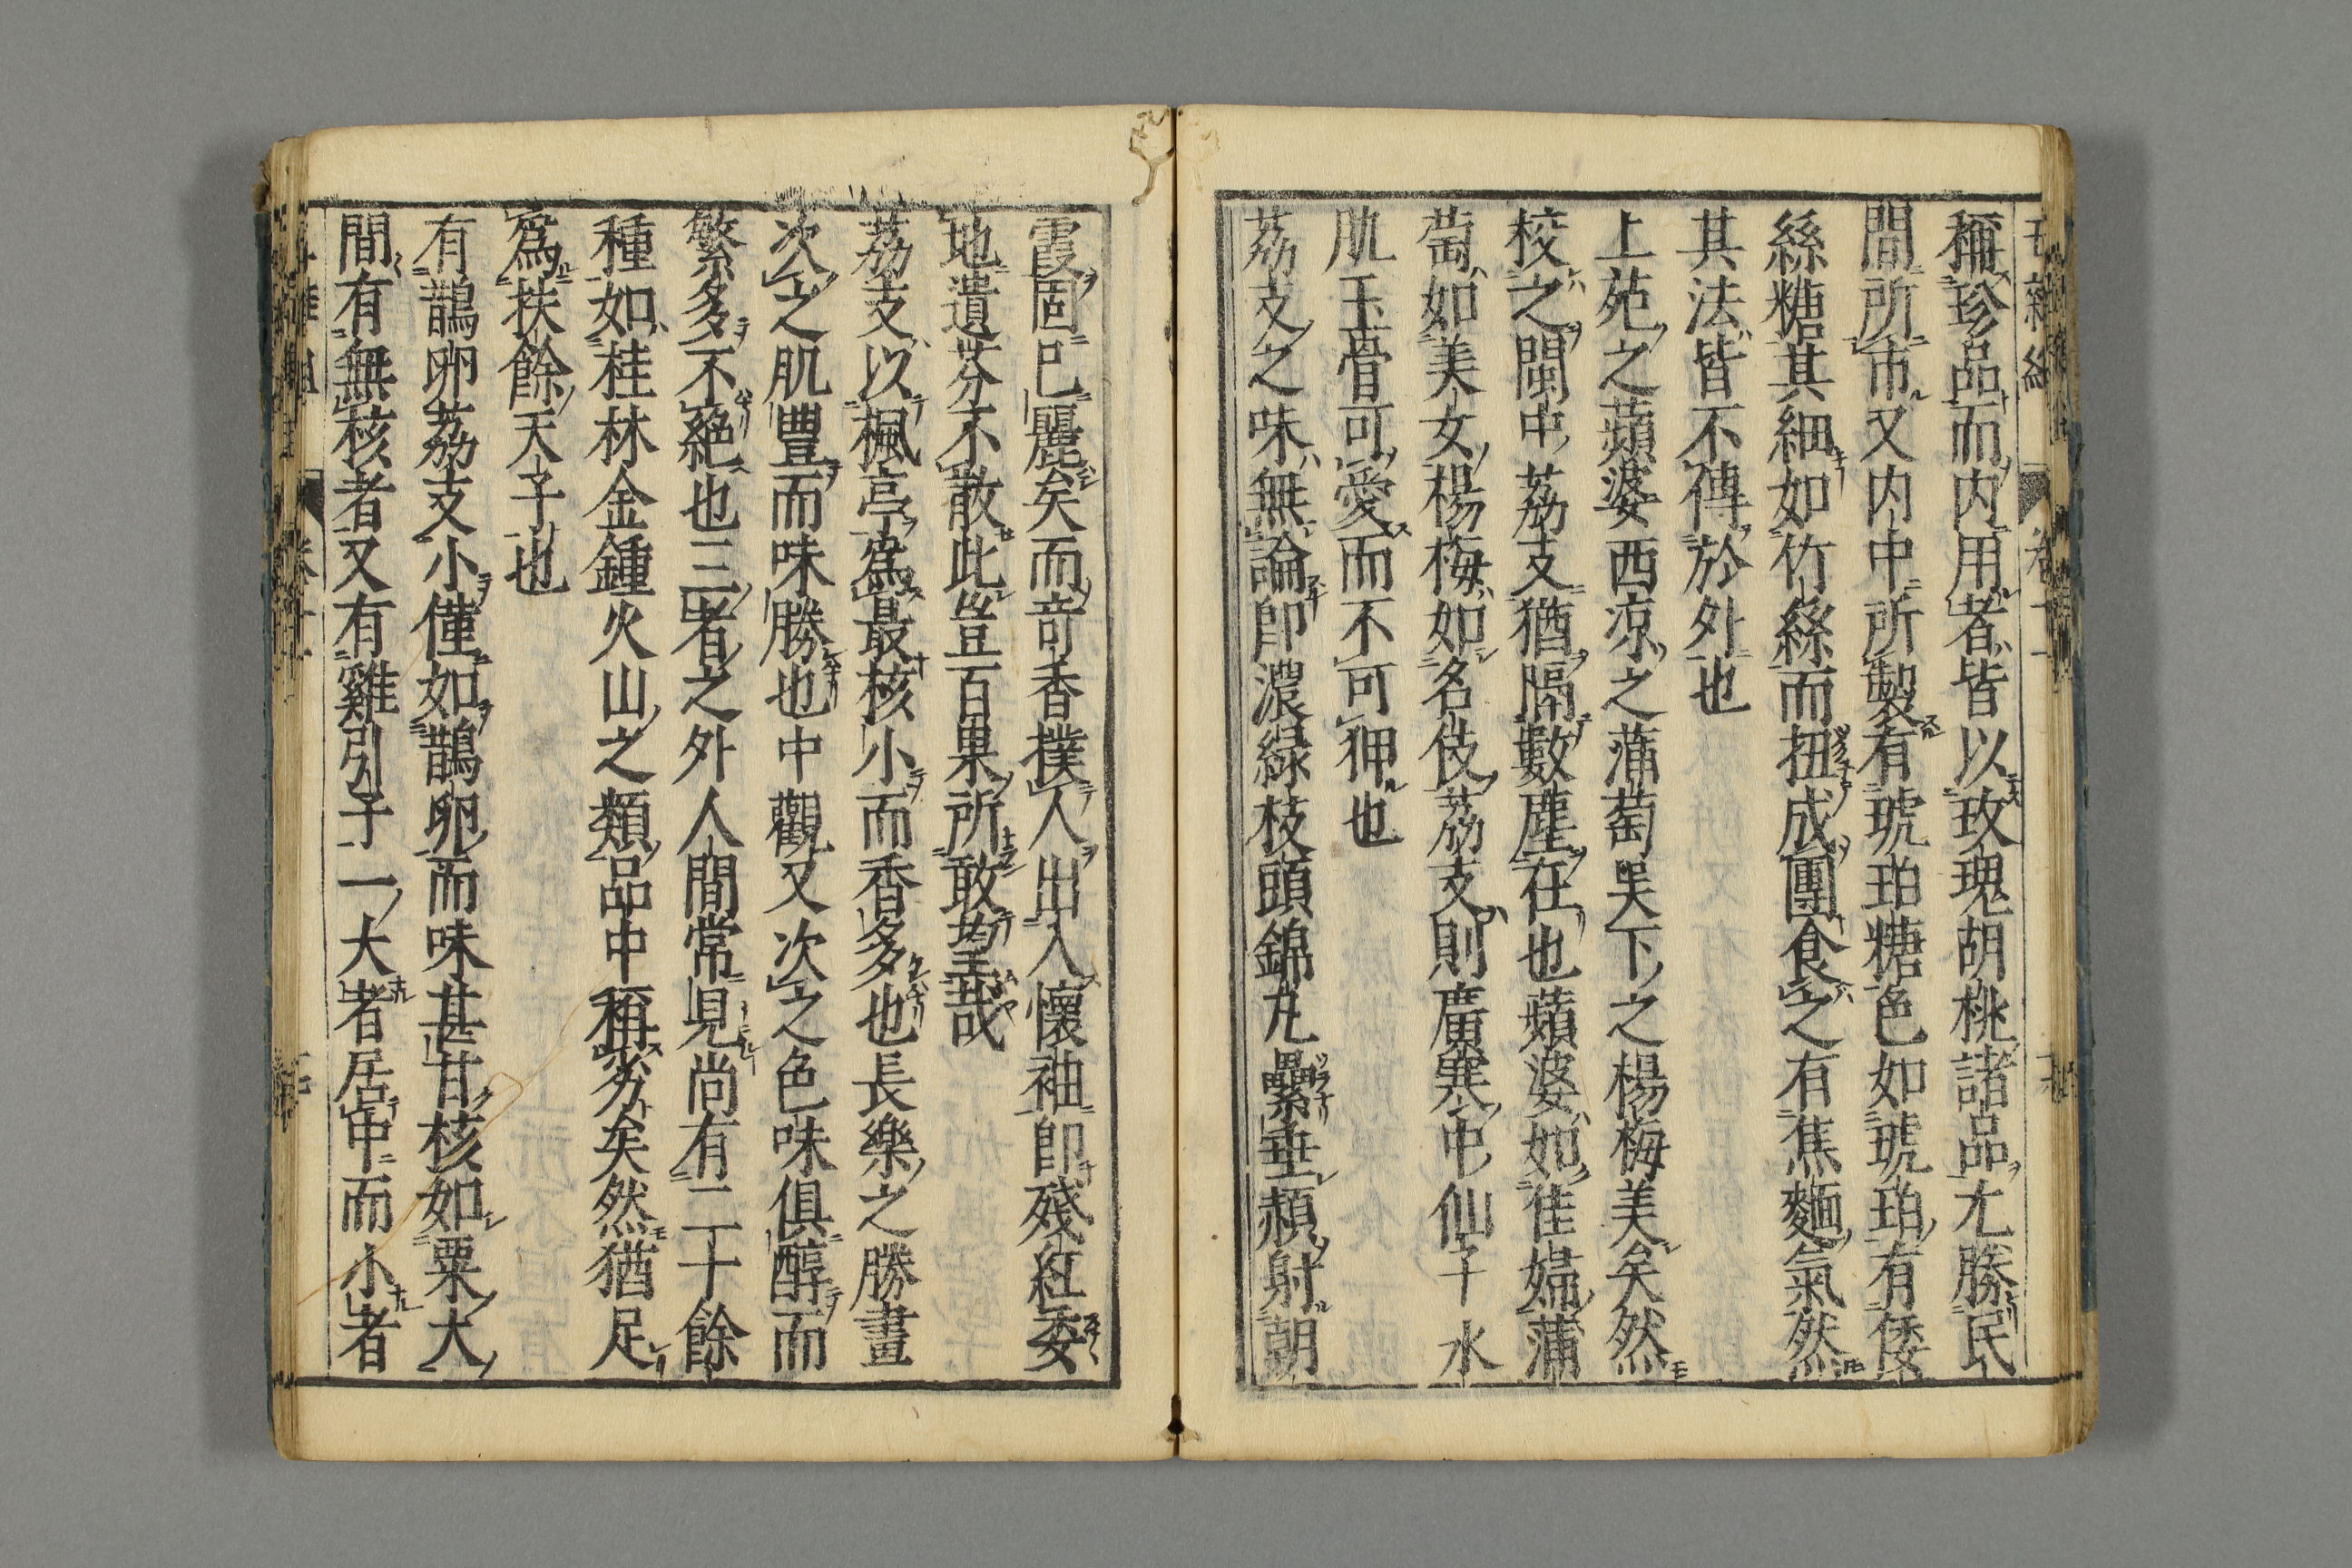 稱珍品而内用者皆以玫瑰胡桃諸品尤勝民
間所市又内中所製有琥珀糖色如琥珀有倭
絲糖其細如竹絲而扭成團食之有焦麵氣然
其法皆不傳於外也
上苑之蘋婆西凉之蒲萄吳下之楊梅美矣然
校之閩中荔支猶隔數塵在也蘋婆如佳婦蒲
萄如美女楊梅如名伎荔支則廣寒中仙子水
肌玉骨可愛而不可狎也
荔支之味無論即濃綠枝頭錦丸纍垂頳射朝
霞固已麗矣而竒香撲人出入懷袖即殘紅委
地遺芬不散此豈百果所敢望哉
荔支以楓亭爲最核小而香多也長樂之勝畫
次之肌豐而味勝也中觀又次之色味俱醇而
繁多不絕也三者之外人間常見尚有二十餘
種如桂林金鍾火山之類品中稱劣矣然猶足
爲扶餘天子也
有鵲卵荔支小僅如鵲卵而味甚甘核如粟大
間有無核者又有雞引子一大者居中而小者